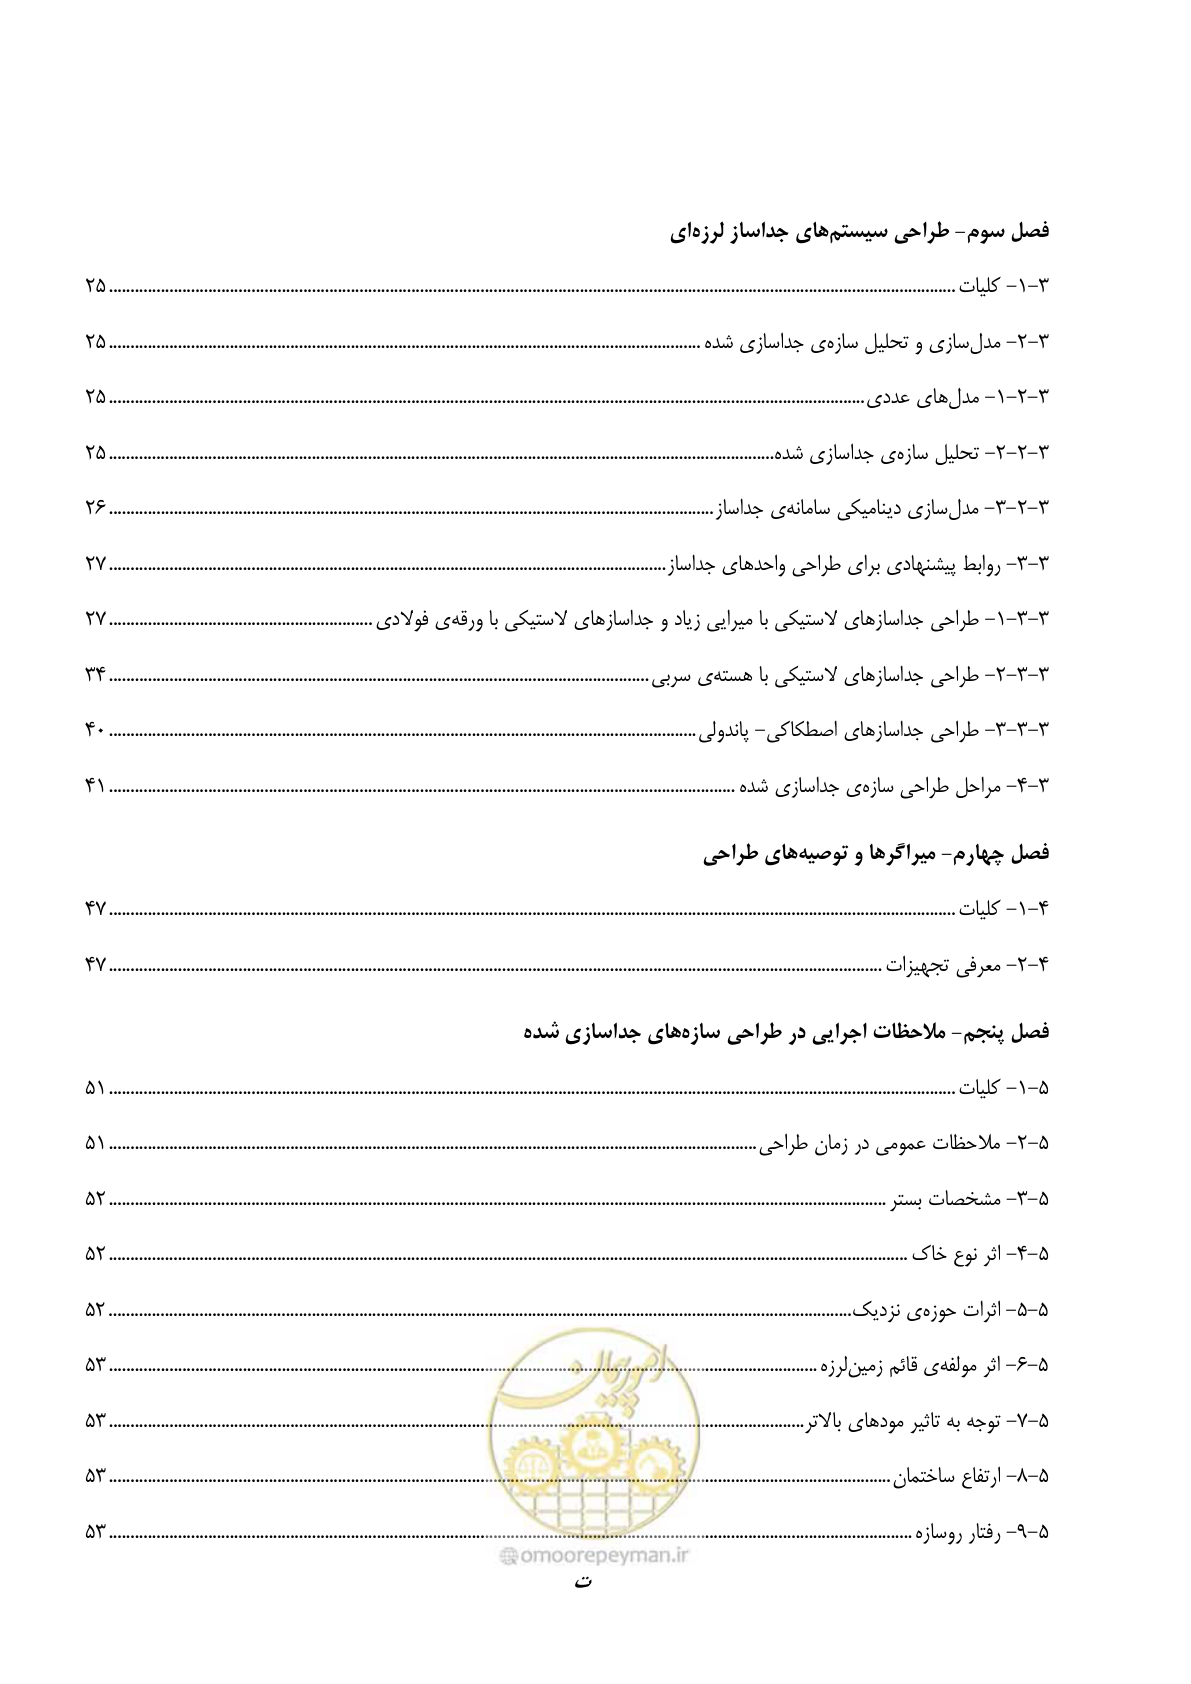 فصل سوم- طراحی سیستم‌های جداساز لرزه‌ای
۳-۱- کلیات ........ ۲۵
۳-۲- مدل‌سازی و تحلیل سازه‌ی جداسازی شده ........ ۲۵
۳-۲-۱- مدل‌های عددی ........ ۲۵
۳-۲-۲- تحلیل سازه‌ی جداسازی شده ........ ۲۵
۳-۲-۳- مدل‌سازی دینامیکی سامانه‌ی جداساز ........ ۲۶
۳-۳- روابط پیشنهادی برای طراحی واحدهای جداساز ........ ۲۷
۳-۳-۱- طراحی جداسازهای لاستیکی با میرایی زیاد و جداسازهای لاستیکی با ورقه‌ی فولادی ........ ۲۷
۳-۳-۲- طراحی جداسازهای لاستیکی با هسته‌ی سربی ........ ۳۴
۳-۳-۳- طراحی جداسازهای اصطکاکی- پاندولی ........ ۴۰
۳-۴- مراحل طراحی سازه‌ی جداسازی شده ........ ۴۱
فصل چهارم- میراگرها و توصیه‌های طراحی
۴-۱- کلیات ........ ۴۷
۴-۲- معرفی تجهیزات ........ ۴۷
فصل پنجم- ملاحظات اجرایی در طراحی سازه‌های جداسازی شده
۵-۱- کلیات ........ ۵۱
۵-۲- ملاحظات عمومی در زمان طراحی ........ ۵۱
۵-۳- مشخصات بستر ........ ۵۲
۵-۴- اثر نوع خاک ........ ۵۲
۵-۵- اثرات حوزه‌ی نزدیک ........ ۵۲
۵-۶- اثر مولفه‌ی قائم زمین‌لرزه ........ ۵۳
۵-۷- توجه به تاثیر مودهای بالاتر ........ ۵۳
۵-۸- ارتفاع ساختمان ........ ۵۳
۵-۹- رفتار روسازه ........ ۵۳
امور پیمان
@omoorepeyman.ir
ت